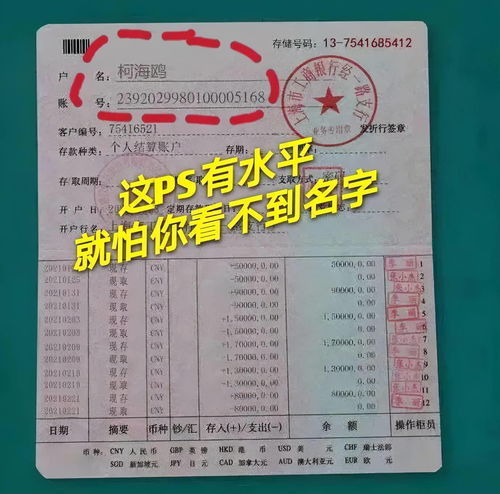 存储号码：13-7541685412
户 名：柯海鸥
账 号：2392029980100005168
上海市工商银行经一路支行
业务专用章
发折行签章
客户编号：75416521
存款种类：个人结算账户 存期：
存取周期： 支取方式：
这PS有水平
就怕你看不到名字
开户日：
开户行名：
现存 CNY +50000,0.00 50000,0.00 李丽 1
20210125 现取 CNY -50000,0.00 0.00 张小杰 2
20210131 现存 CNY +90000,0.00 90000,0.00 3
20210131 现取 CNY -90000,0.00 0.00 4
20210216 现存 CNY +1,50000,0.00 1,50000,0.00 李丽 5
20210216 现取 CNY -1,50000,0.00 0.00 6
20210218 现存 CNY +1,70000,0.00 1,70000,0.00 7
20210218 现取 CNY -1,70000,0.00 0.00 8
20210219 现存 CNY +1,30000,0.00 1,30000,0.00 9
20210219 现取 CNY -1,30000,0.00 0.00 10
20210221 现存 CNY +80000,0.00 80000,0.00 11
20210221 现取 CNY -80000,0.00 0.00 12
日期 摘要 币种 钞/汇 存入(+)/支出(-) 余额 操作柜员
币种：CNY 人民币 GBP 英镑 HKD 港币 USD 美元 CHF 瑞士法郎
SGD 新加坡元 JPY 日元 CAD 加拿大元 AUD 澳大利亚元 EUR 欧元